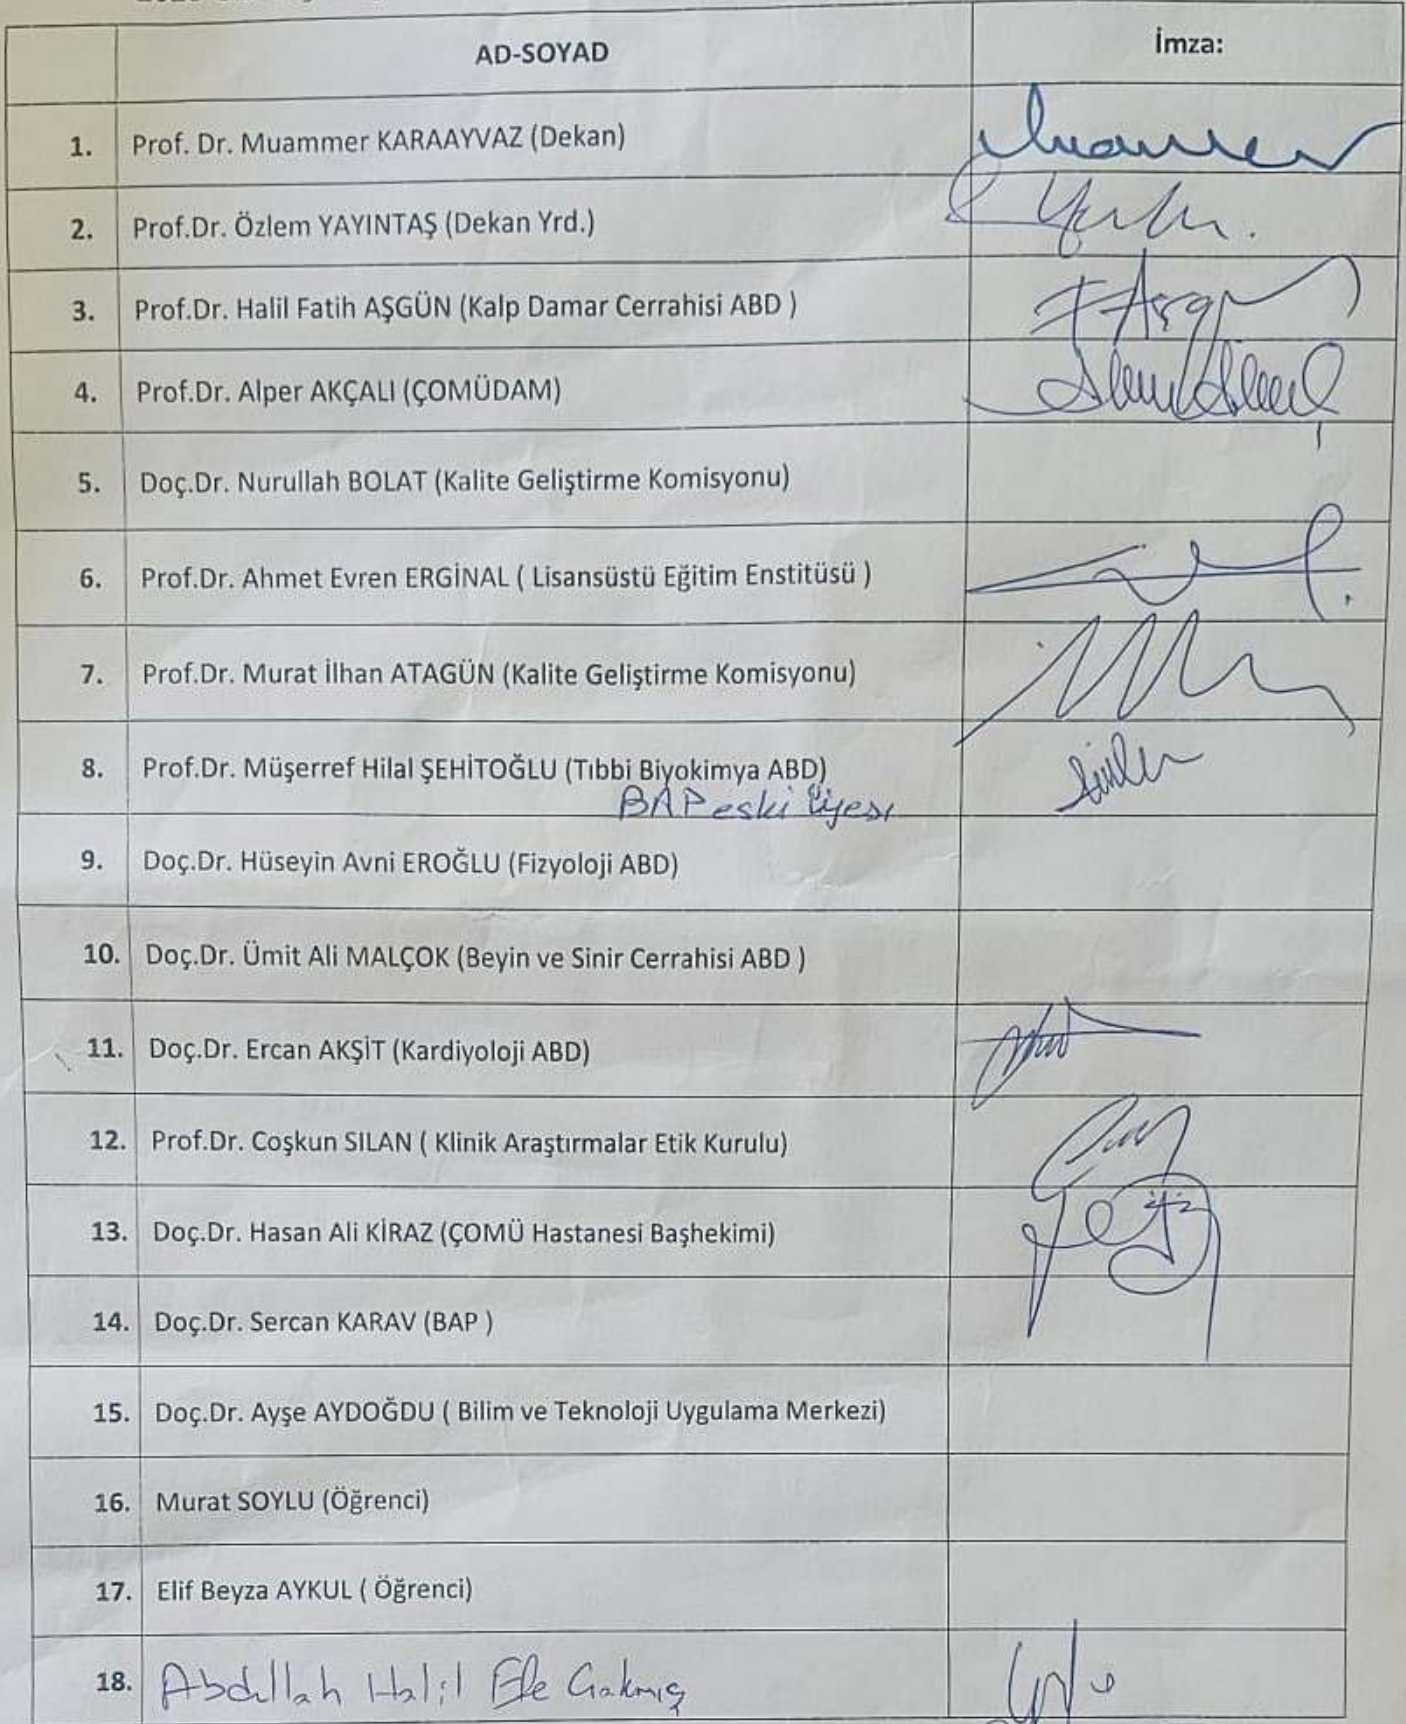 AD-SOYAD İmza:
1. Prof. Dr. Muammer KARAAYVAZ (Dekan)
2. Prof.Dr. Özlem YAYINTAŞ (Dekan Yrd.)
3. Prof.Dr. Halil Fatih AŞGÜN (Kalp Damar Cerrahisi ABD )
4. Prof.Dr. Alper AKÇALI (ÇOMÜDAM)
5. Doç.Dr. Nurullah BOLAT (Kalite Geliştirme Komisyonu)
6. Prof.Dr. Ahmet Evren ERGİNAL ( Lisansüstü Eğitim Enstitüsü )
7. Prof.Dr. Murat İlhan ATAGÜN (Kalite Geliştirme Komisyonu)
8. Prof.Dr. Müşerref Hilal ŞEHİTOĞLU (Tıbbi Biyokimya ABD)
BAP eski üyesi
9. Doç.Dr. Hüseyin Avni EROĞLU (Fizyoloji ABD)
10. Doç.Dr. Ümit Ali MALÇOK (Beyin ve Sinir Cerrahisi ABD )
11. Doç.Dr. Ercan AKŞİT (Kardiyoloji ABD)
12. Prof.Dr. Coşkun SILAN ( Klinik Araştırmalar Etik Kurulu)
13. Doç.Dr. Hasan Ali KİRAZ (ÇOMÜ Hastanesi Başhekimi)
14. Doç.Dr. Sercan KARAV (BAP )
15. Doç.Dr. Ayşe AYDOĞDU ( Bilim ve Teknoloji Uygulama Merkezi)
16. Murat SOYLU (Öğrenci)
17. Elif Beyza AYKUL ( Öğrenci)
18. Abdullah Halil Efe